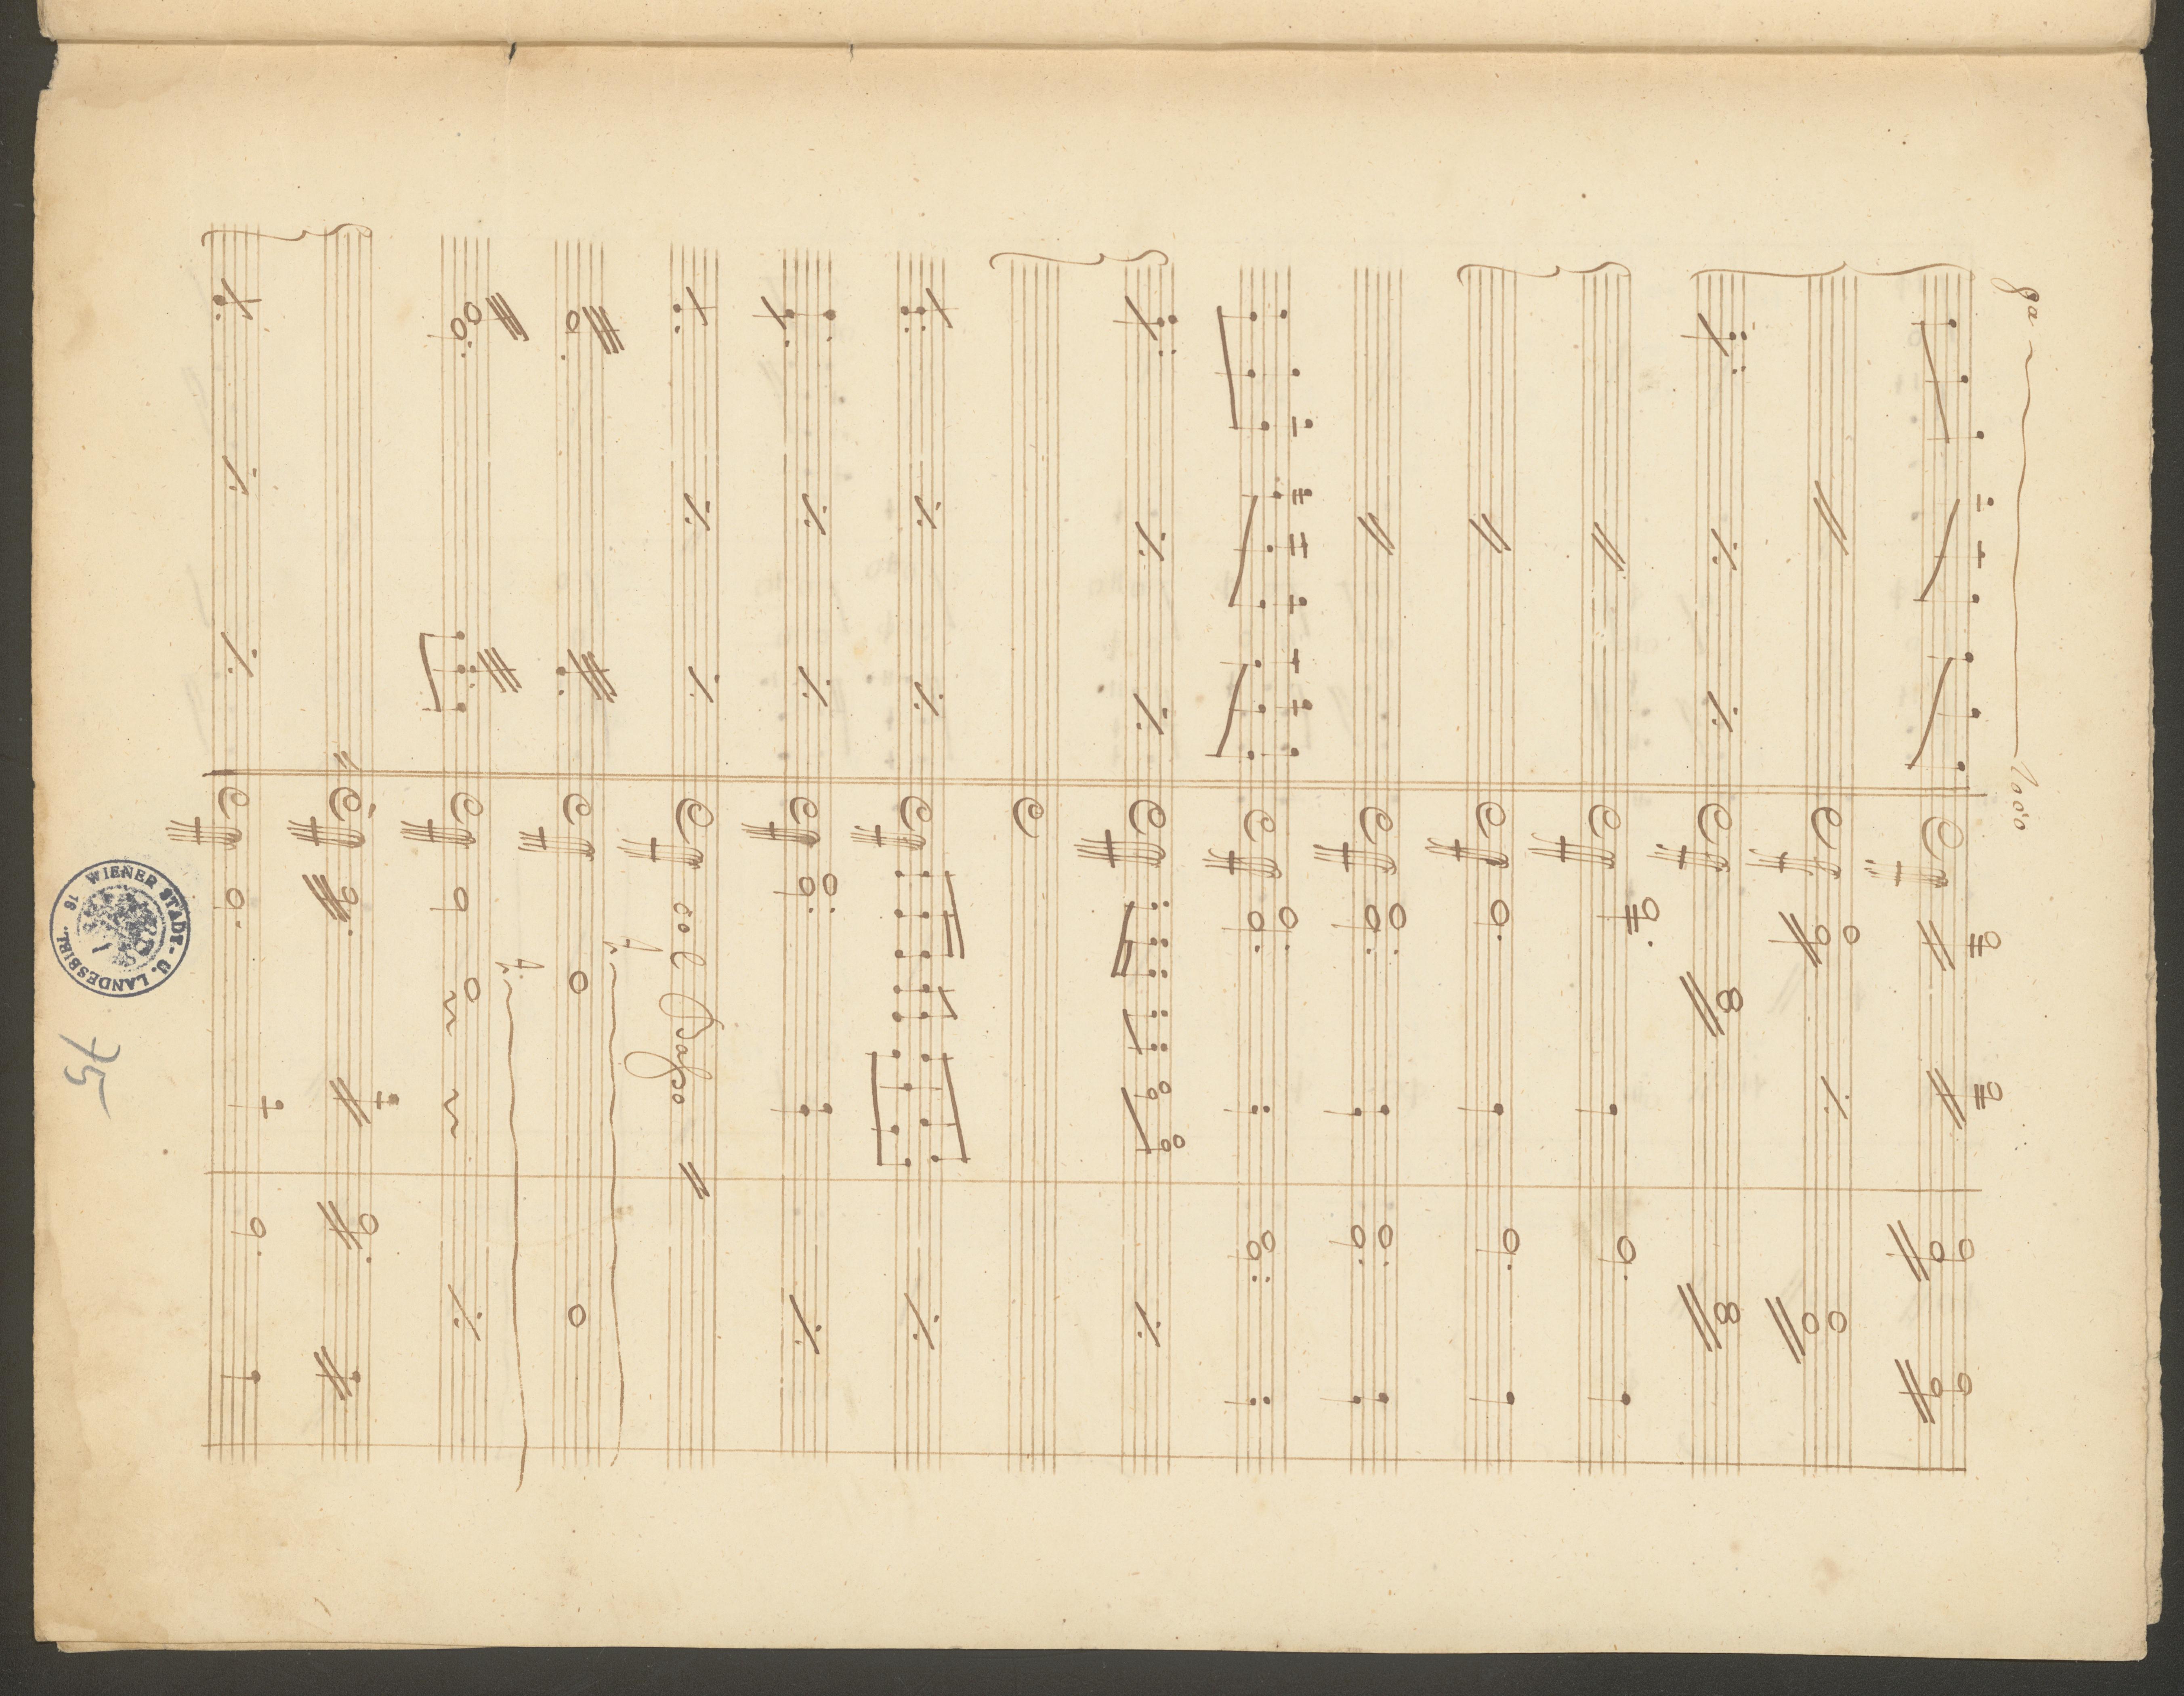 8a loco
col Basso
WIENER STADT- U. LANDESBIBL.
75